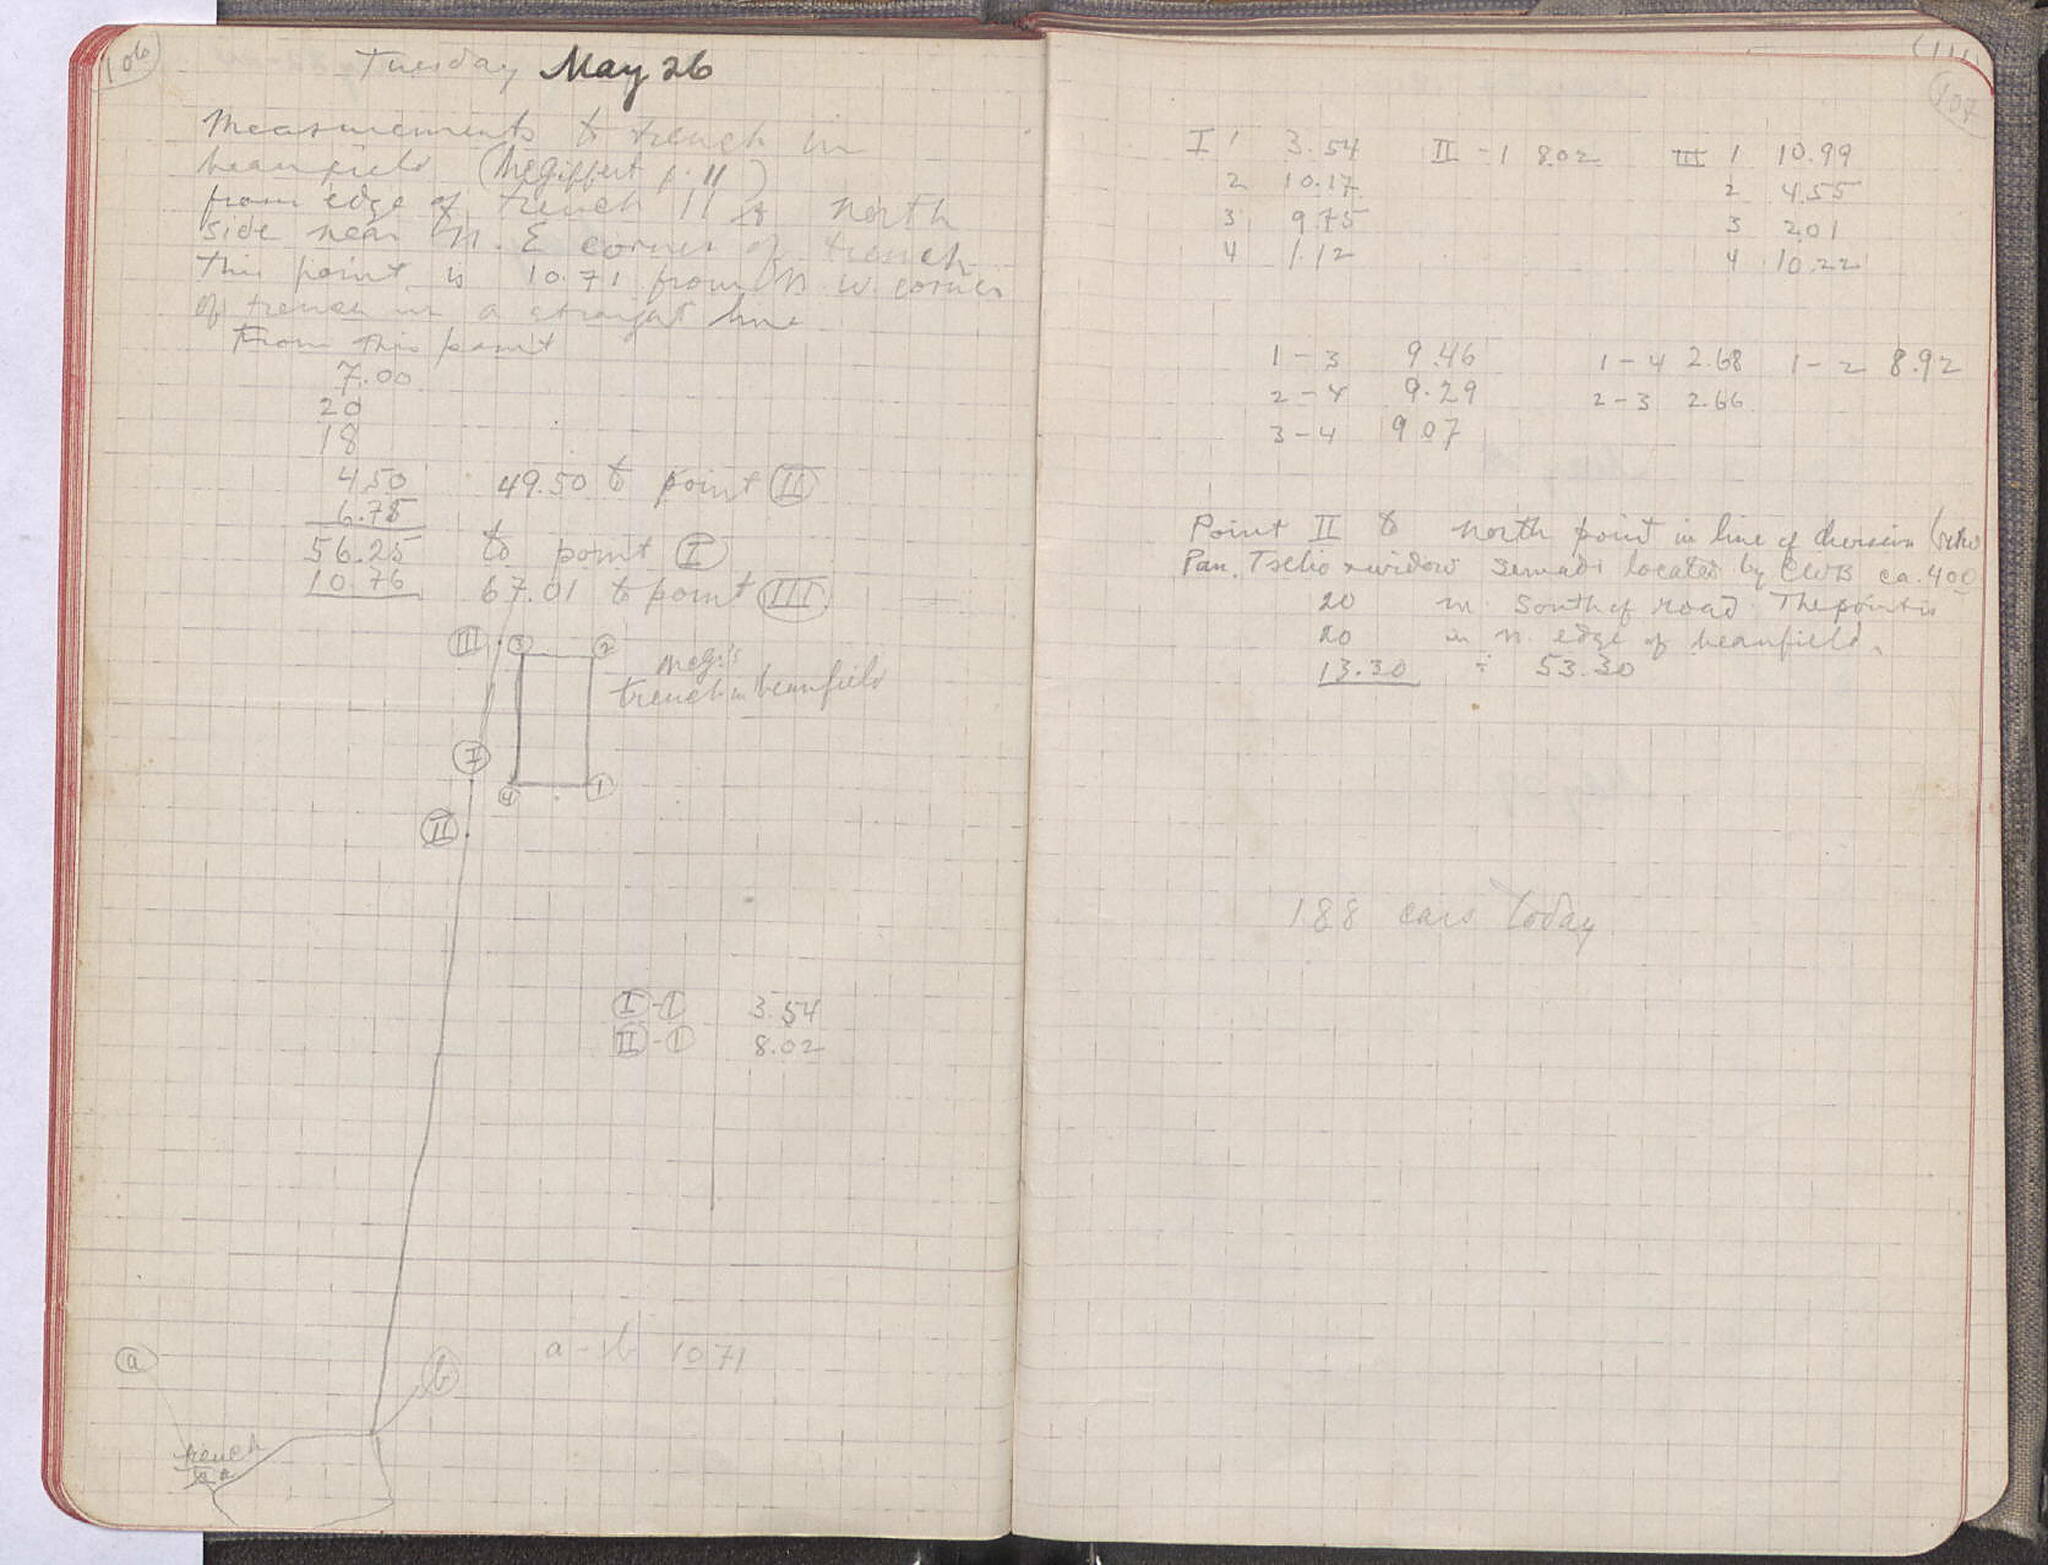 106
Tuesday May 26
Measurements to trench in
beanfield (McGiffert p. 11)
from edge of trench 11 north
side near N. E corner of trench
This point is 10.71 from N. W. corner
of trench in a straight line
From this point
7.00
20
18
4.50 49.50 to point II
6.75
56.25 to point I
10.76 67.01 to point III
III 3 2
McG's
trench in beanfield
I
4 1
II
I - 1 3.54
II - 1 8.02
a - b 10 71
a b
trench
111
107
I 1 3.54 II - 1 8.02 III 1 10.99
2 10.17 2 4.55
3 9.75 3 2.01
4 1.12 4 10.22
1 - 3 9.46 1 - 4 2.68 1 - 2 8.92
2 - 4 9.29 2 - 3 2.66
3 - 4 9 07
Point II to north point in line of division
Pan. Tselio widow located by CWB ca. 400
20 m. South of road. The point is
20 in n. edge of beanfield.
13.30 ÷ 53.30
188 cars today